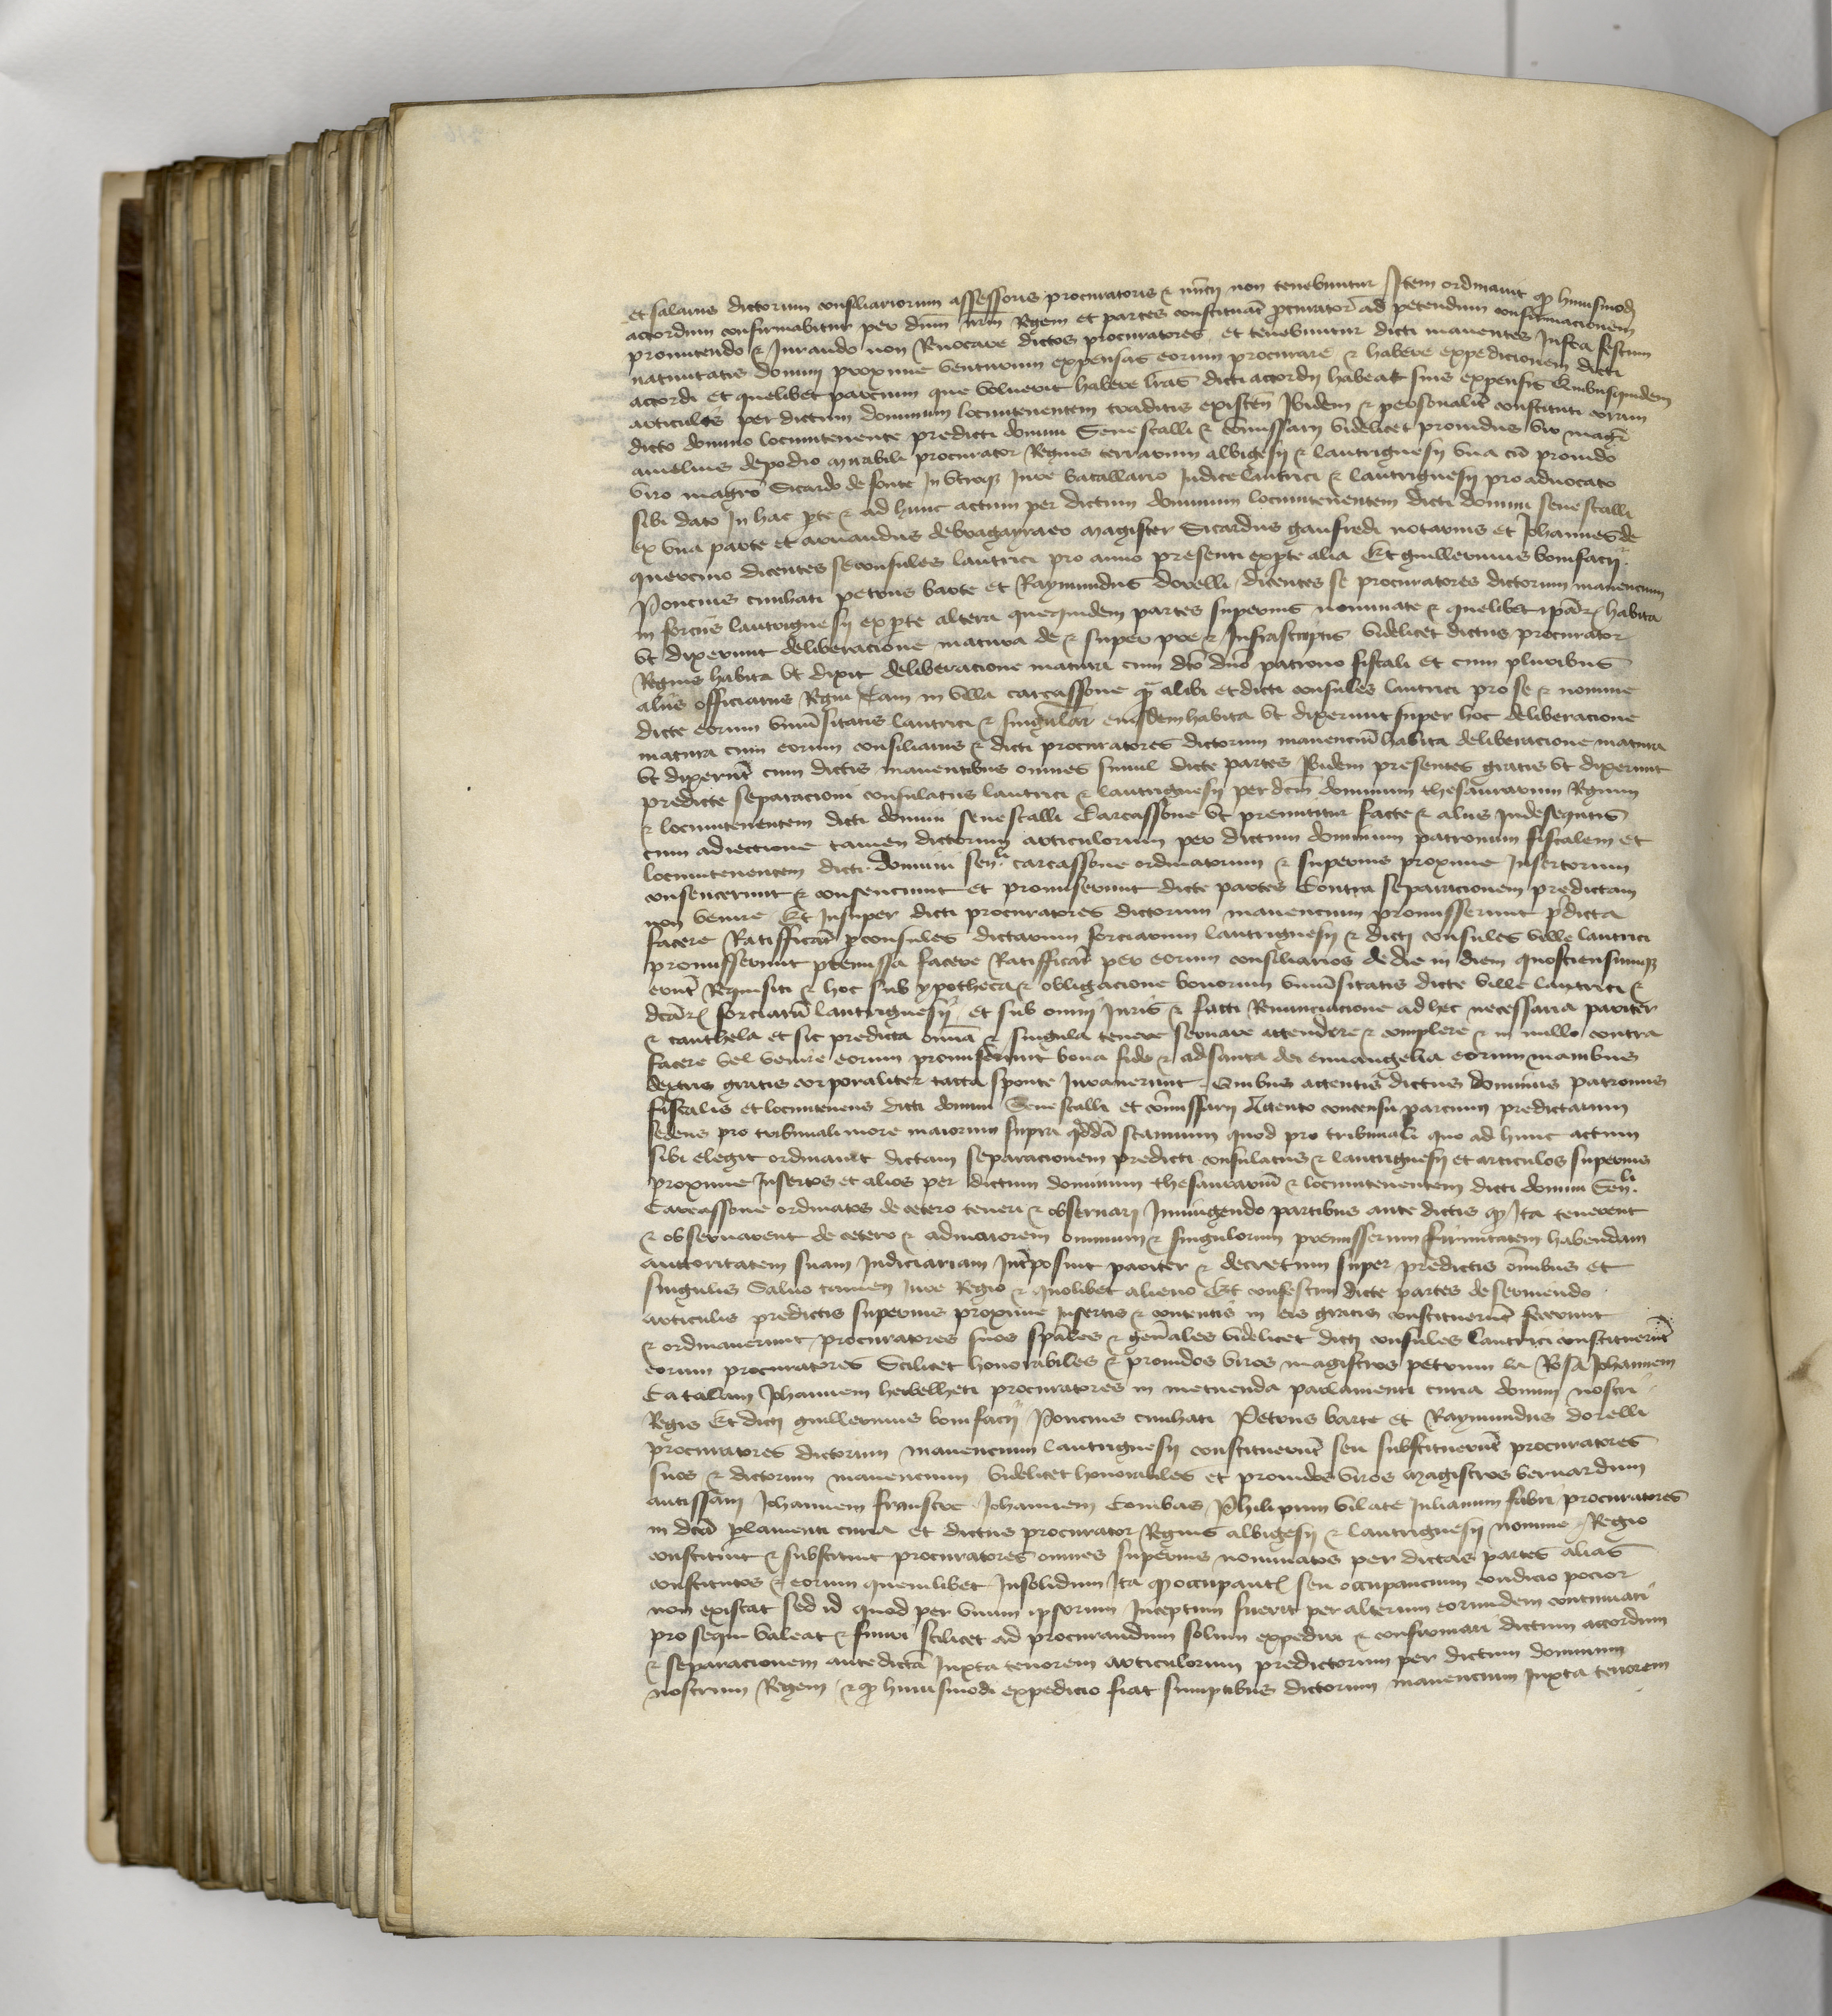 et salarius dictorum consiliariorum assessoris procuratoris & nūcij non tenebuntur Item ordinauit qp huiusmodj
accordum confirmabitur per dnm̄ nrm̄ Regem et partes constituāt pcuratorē ad petendum confirmacionem
promittendo & Iurando non Reuocare dictos procuratores et tenebuntur dicti manentes Infra festum
natiuitatis domini proxime venturum expensas eorum procurare & habere expedicionem dicti
accordi et quelibet parcium que voluerit habere lrās dicti accordij habeat suis expensis Quibusquidem
articulis per dictum dominum locumtenentem traditis existen̄ Ibidem & personalit̄ constituti coram
dicto domino locumtenente predicti domini Senescalli & comissarij videlicet prouidus vir magr̄
amelius depodio mirabili procurator Regius terrarum albigesij & lautriguesij vna cū prouido
viro magrō Sicardo de fonte In vtroqz Iure bacallario Iudice lautrici & lautriguesij pro aduocato
sibi dato In hac pte & ad hunc actum per dictum dominum locumtenentem dicti domini senescalli
ex vna parte et arnaudus debragayraco magister Sicardus gaufredi notarius et Johannes de
quercino dicentes se consules lautrici pro anno presenti expte alia Et guillermus bonifacij
Poncius cunhati petrus barte et Raymundus dorelli dicentes se procuratores dictorum manencium
in forciis lautriguesij ex pte altera quequidem partes superius nominate & quelibet ipār habita
vt dixerunt deliberacione matura de & super pre & Infrascriptis videlicet dictus procurator
Regius habita vt dixit deliberacione matura cum dto dno patrono fiscali et cum pluribus
aliis officiariis Regiis tam in villa carcassone q̄ alibi et dicti consules lautrici pro se & nomine
dicte eorum vniūsitatis lautrici & singular̄ eiusdem habita vt dixerunt super hoc deliberacione
matura cum eorum consiliariis & dicti procuratores dictorum manenciū habita deliberacione matura
vt dixerūt cum dictis manentibus omnes simul dicte partes Ibidem presentes gratis vt dixerunt
predicte separacioni consulatus lautrici & lautriguesij per dcm̄ dominum thesaurarium Regium
& locumtenentem dicti domini senescalli Carcassone vt premittitur facte & aliis Indesequtis
cum adiectione tamen dictorum articulorum per dictum dominum patronum fiscalem et
locumtenentem dicti domini sen.li carcassone ordinatorum & superius proxime Insertorum
consencerunt & consenciunt et promiserunt dicte partes Contra separacionem predictam
non venire Et Insuper dicti procuratores dictorum manencium promisserunt pdicta
facere Ratifficar̄ pconsules dictarum forciarum lautriguesij & dictj consules ville lautrici
promisserunt pemissa facere Ratifficar̄ per eorum consiliarios de die in diem quosciensumqz
erūt Requisiti & hoc sub ypotheca & obligacione bonorum vniūsitatis dicte ville lautrici &
dcār forciarū lautriguesij et sub omni Iuris & facti Renunciacione ad hec necessaria pariter
& cauthela et sic predicta omīa & singula tenere seruare attendere & complere & in nullo contra
facere vel venire eorum promiserunt bona fide & ad santa dei euuangelia eorum manibus
dextris gratis corporaliter tacta sponte Iurauerunt Quibus attentis dictus dominus patronus
fiscalis et locumtenens dicti domini Senescalli et comissarij Attento concensu parcium predictarum
sedens pro tribunali more maiorum supra qddā scannum quod pro tribunali quo ad hunc actum
sibi elegit ordinauit dictam separacionem predicti consulatus & lautriguesij et articulos superius
proxime Insertos et alios per dictum dominum thesaurariū & locumtenentem dicti domini Sen.li
Carcassone ordinatos de cetero teneri & obseruarj Iniungendo partibus ante dictis qp Ita tenerent
& obseruarent de cetero & admaiorem omnium & singulorum premisserum firmitatem habendam
auttoritatem suam Iudiciariam Int̄posuit pariter & decretum super predictis om̄ibus et
singulis Saluo tamen Iure Regio & quolibet alieno Et confestim dicte partes deseruiendo
articulis predictis superius proxime Insertis & contentis in eis gratis constituerūt fecerunt
& ordinauerunt procuratores suos spāles & gen̄ales videlicet dictj consules lautrici constituerūt
eorum procuratores Scilicet honorabiles & prouidos viros magistros petrum la Rosa Johannem
Catallam Johannem herbelheti procuratores in metuenda parlamenti curia domini nostri
Regis Et dictj guillermus bonifacij Poncius cunhati Petrus barte et Raymundus dorelli
procuratores dictorum manencium lautriguesij constituerūt seu substituerūt procuratores
suos & dictorum manencium videlicet honorabiles et prouidos viros magistros bernardum
autissām Johannem franscre Johannem Combas Philippum vilate Iulianum fabri procuratores
in dcā plamenti curia et dictus procurator Regius albigesij & lautriguesij nomine Regio
constituit & substituit procuratores omnes superius nominatos per dictas partes alias
constitutos & eorum quemlibet Insolidum Ita qp occupantē seu occupancium condicio pocior
non existat sed id quod per vnum ipsorum Inceptum fuerit per alterum eorumdem continuari
prosequi valeat & finiri scilicet ad procurandum solum expediri & confirmari dictum accordum
& separacionem antedictā Iuxta tenorem articulorum predictorum per dictum dominum
nostrum Regem & qp huiusmodi expedicio fiat sumptibus dictorum manencium Iuxta tenorem